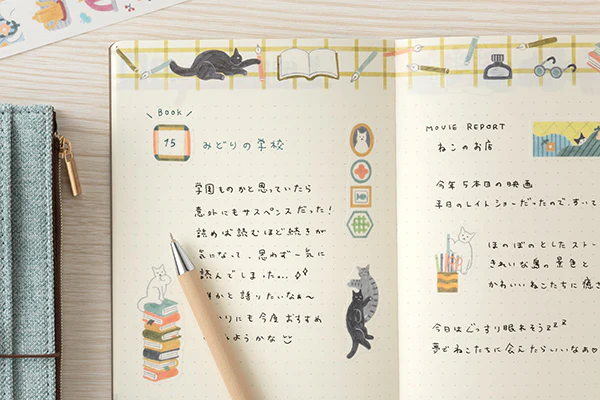 BOOK
15
みどりの学校
学園ものかと思っていたら
意外にもサスペンスだった!
読めば読むほど続きが
気になって、思わず一気に
読んでしまった…
かと語りたいなぁ〜
りにも今度おすすめ
ようかな
MOVIE REPORT
ねこのお店
今年5本目の映画
平日のレイトショーだったので、すいて
ほのぼのとしたストー
きれいな島の景色と
かわいいねこたちに癒さ
今日はぐっすり眠れそうzzz
夢でねこたちに会えたらいいなぁ